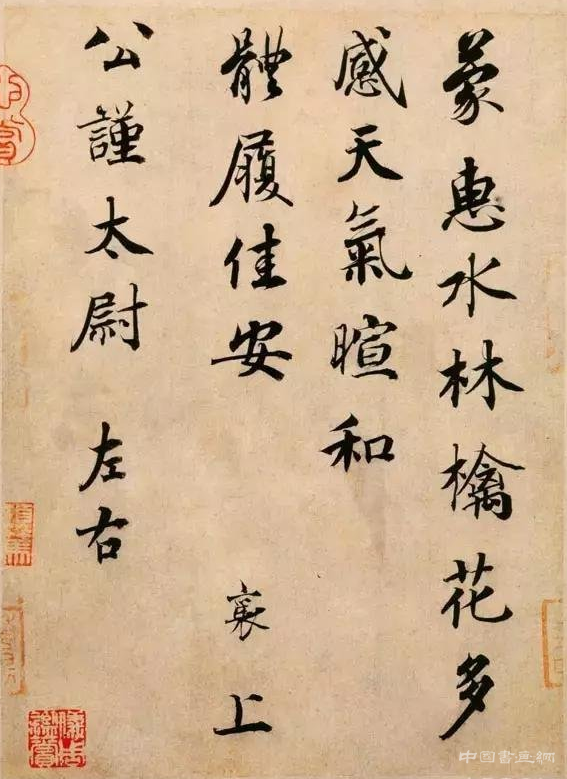 蒙惠水林檎花多
感天氣暄和
體履佳安 襄上
公謹太尉 左右
中国書画網